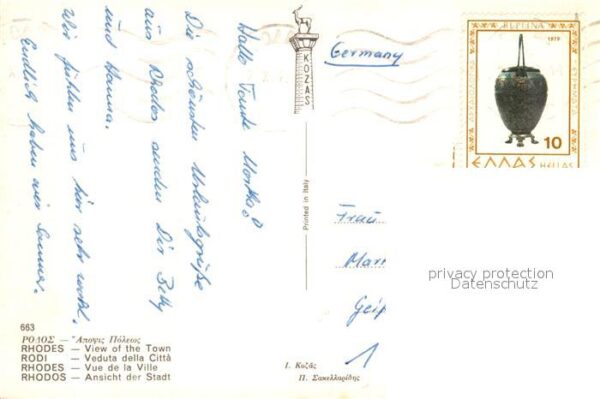 Hallo Tante Martha!
Die schönsten Urlaubsgrüße
aus Rhodos senden Dir Betty
und Hanna.
Wir fühlen uns hier sehr wohl.
Endlich haben wir Sommer.
663
ΡΟΔΟΣ — Ἄποψις Πόλεως
RHODES — View of the Town
RODI — Veduta della Città
RHODES — Vue de la Ville
RHODOS — Ansicht der Stadt
KOZAS
Printed in Italy
Ι. Κοζᾶς
Π. Σακελλαρίδης
Germany
1979
10
ΕΛΛΑΣ HELLAS
Frau
Mar
Geip
1
privacy protection
Datenschutz